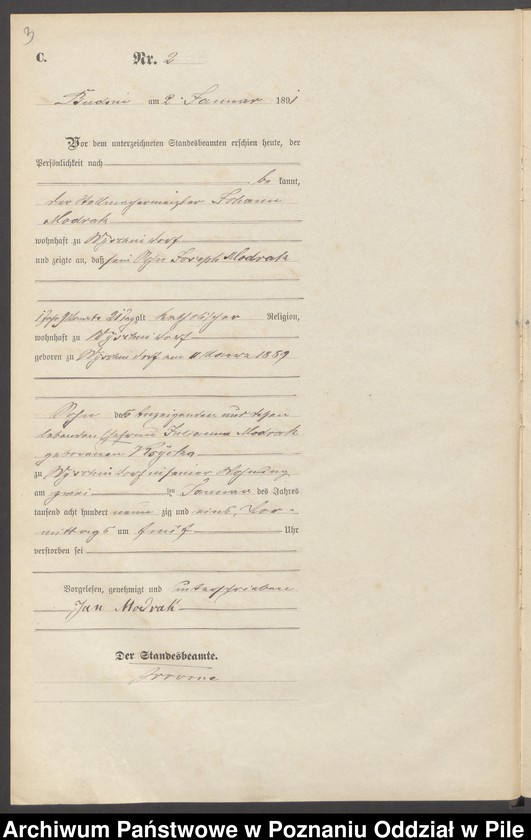 3
C. Nr. 2
Budsin am 2. Januar 1891
Vor dem unterzeichneten Standesbeamten erschien heute, der
Persönlichkeit nach
be kannt,
der Johann
Modrak
wohnhaft zu dorf
und zeigte an, daß sein Sohn Joseph Modrak
1 Jahr 9 Monate 21 Tage alt katholischer Religion,
wohnhaft zu dorf
geboren zu dorf am 11 Maerz 1889
Sohn des Anzeigenden und dessen
lebenden Ehefrau Julianna Modrak
geborenen
zu dorf in seiner Wohnung
am zwei ten Januar des Jahres
tausend acht hundert neun zig und eins, Vor-
mittags um fünf Uhr
verstorben sei
Vorgelesen, genehmigt und unterschrieben
Jan Modrak
Der Standesbeamte.
Archiwum Państwowe w Poznaniu Oddział w Pile